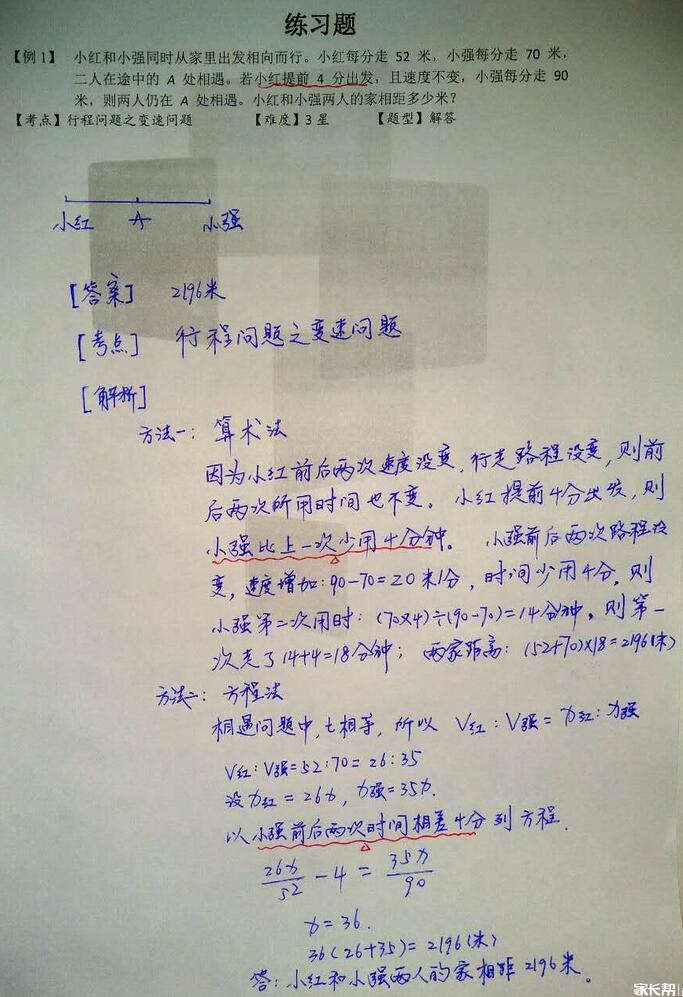 练习题
【例1】 小红和小强同时从家里出发相向而行。小红每分走 52 米，小强每分走 70 米，
二人在途中的 A 处相遇。若小红提前 4 分出发，且速度不变，小强每分走 90
米，则两人仍在 A 处相遇。小红和小强两人的家相距多少米？
【考点】行程问题之变速问题 【难度】3星 【题型】解答
小红 A 小强
[答案] 2196米
[考点] 行程问题之变速问题
[解析]
方法一：算术法
因为小红前后两次速度没变，行走路程没变，则前
后两次所用时间也不变。小红提前4分出发，则
小强比上一次少用4分钟。小强前后两次路程没
变，速度增加：90-70=20米/分，时间少用4分，则
小强第二次用时：(70×4)÷(90-70)=14分钟。则第一
次走了14+4=18分钟；两家距离：(52+70)×18=2196(米)
方法二：方程法
相遇问题中，t相等，所以 V红：V强=x红：x强
V红：V强=52：70=26：35
设x红=26x，x强=35x.
以小强前后两次时间相差4分列方程.
26x/52 - 4 = 35x/90
x=36.
36(26+35)=2196(米)
答：小红和小强两人的家相距2196米。
家长帮